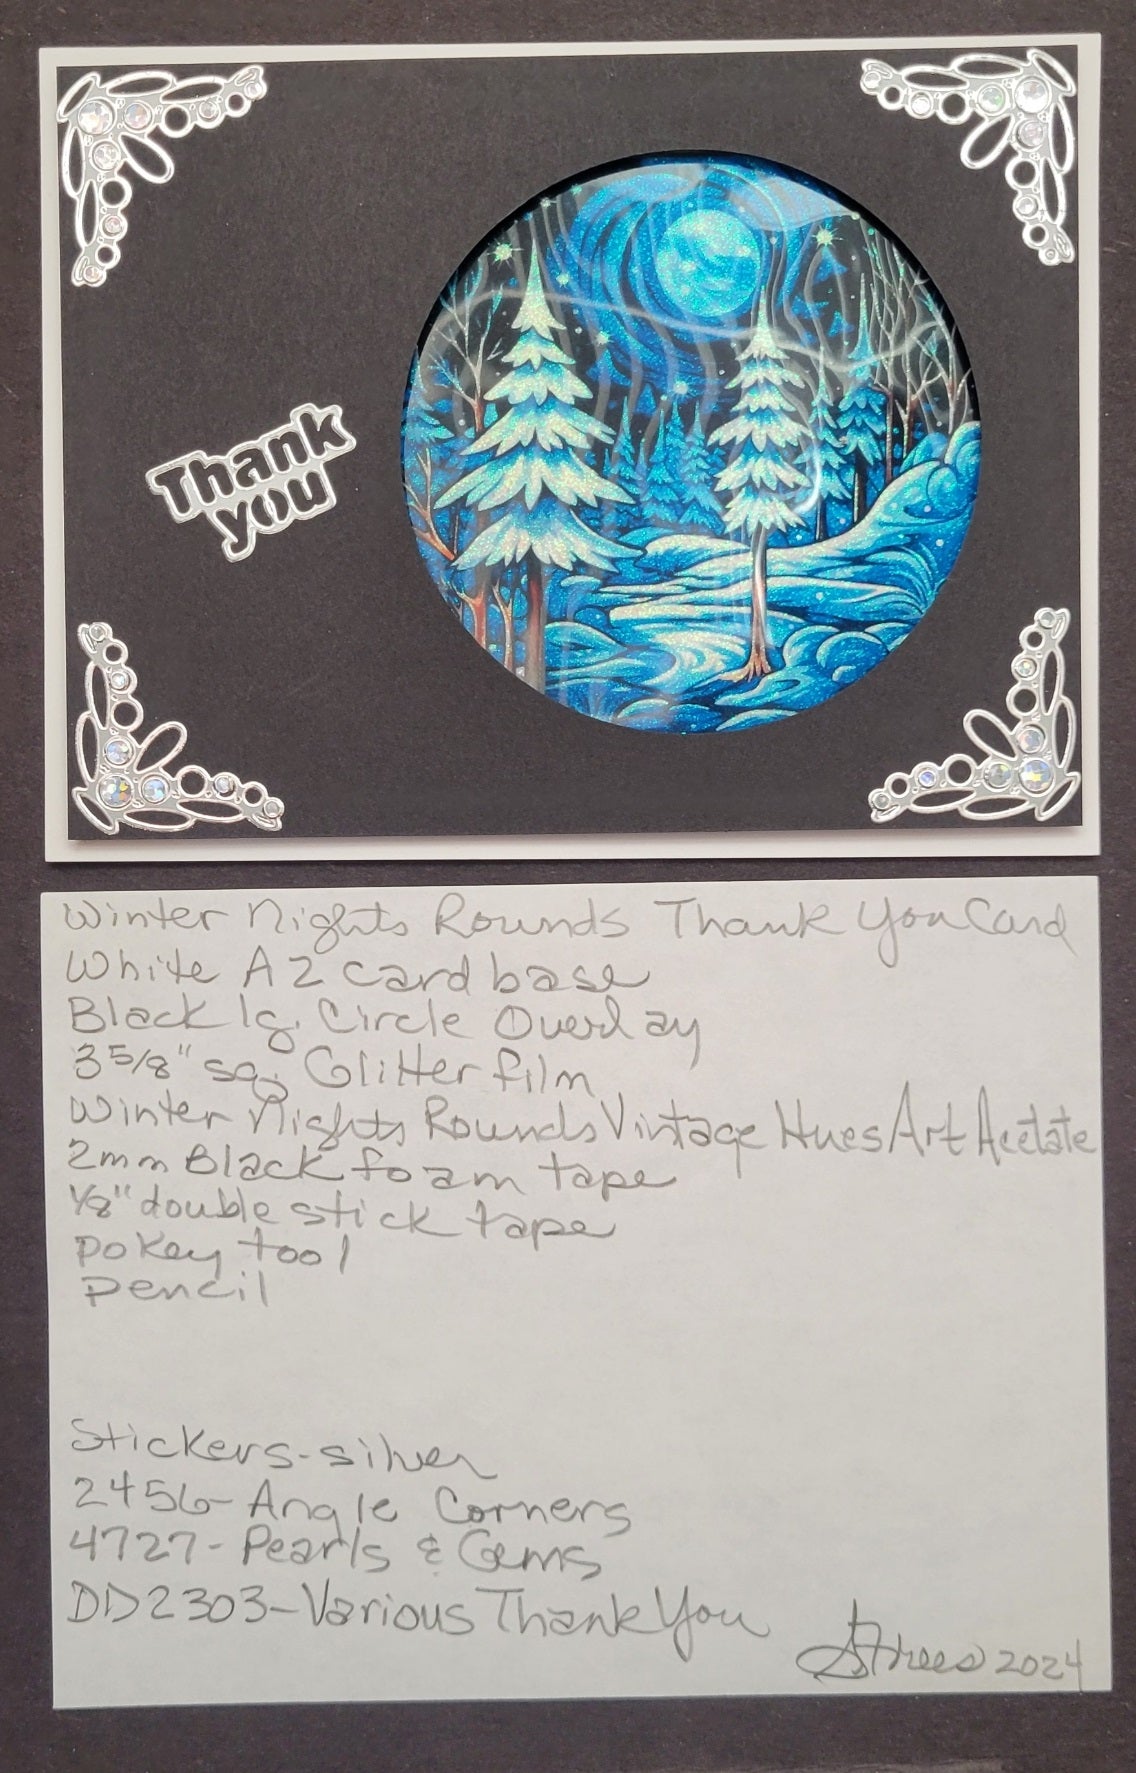 Thank
you
Winter Nights Rounds Thank You Card
White A2 card base
Black lg. Circle Overlay
3 5/8" sq. Glitter film
Winter Nights Rounds Vintage Hues Art Acetate
2mm Black foam tape
1/8" double stick tape
pokey tool
pencil
Stickers-silver
2456-Angle Corners
4727-Pearls & Gems
DD2303-Various Thank You
2024